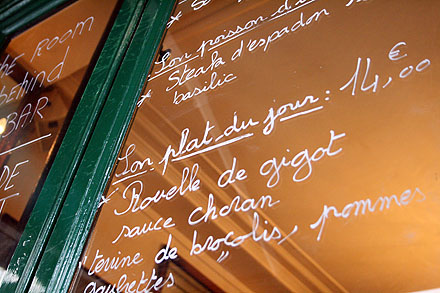 the ROOM
behind
BAR
DE
Son poisson d'
* Steak d'espadon
basilic
Son plat du jour : 14,00 €
* Rouelle de gigot
sauce choran
"terine de brocolis, pommes
gaufrettes "